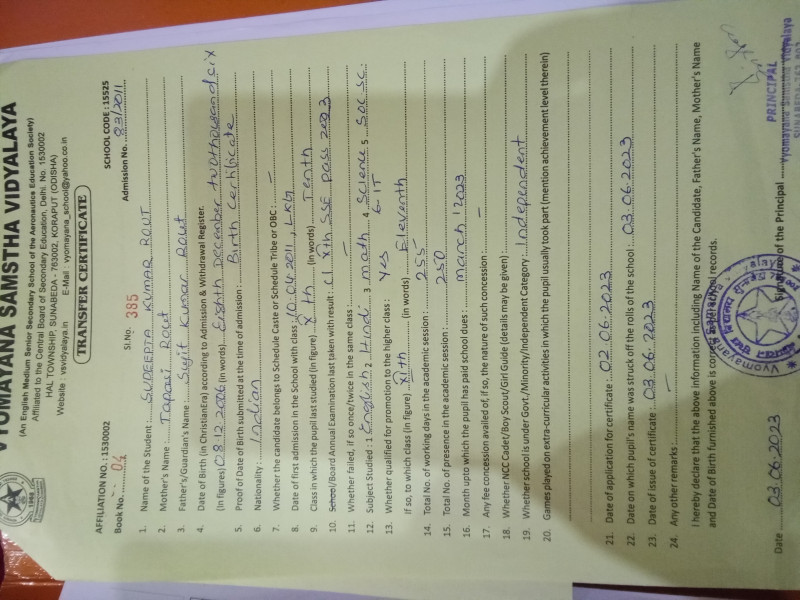 VYOMAYANA SAMSTHA VIDYALAYA
(An English Medium Senior Secondary School of the Aeronautics Education Society)
Affiliated to the Central Board of Secondary Education, Delhi. No. 1530002
HAL TOWNSHIP, SUNABEDA - 763002, KORAPUT (ODISHA)
Website : vsvidyalaya.in E-Mail : vyomayana_school@yahoo.co.in
TRANSFER CERTIFICATE
AFFILIATION NO. : 1530002 SCHOOL CODE : 15525
Book No. 04 Sl. No. 385 Admission No. 83/2011
1. Name of the Student : SUDEEPTA KUMAR ROUT
2. Mother's Name : Tapani Rout
3. Father's/Guardian's Name : Sujit Kumar Rout
4. Date of Birth (in ChristianEra) according to Admission & Withdrawal Register.
(In figures) 08.12.2006 (in words) Eighth December twothousand six
5. Proof of Date of Birth submitted at the time of admission : Birth Certificate
6. Nationality : Indian
7. Whether the candidate belongs to Schedule Caste or Schedule Tribe or OBC : —
8. Date of first admission in the School with class 10.04.2011, LKG
9. Class in which the pupil last studied (In figure) Xth (in words) Tenth
10. School/Board Annual Examination last taken with result : Cl Xth SSE Pass 2023
11. Whether failed, if so once/twice in the same class : —
12. Subject Studied : 1 English 2 Hindi 3 math 4 Science 5 Soc. Sc.
6. IT
13. Whether qualified for promotion to the higher class : Yes
If so, to which class (In figure) XIth (in words) Eleventh
14. Total No. of working days in the academic session : 255
15. Total No. of presence in the academic session : 250
16. Month upto which the pupil has paid school dues : March' 2023
17. Any fee concession availed of, if so, the nature of such concession : —
18. Whether NCC Cadet/Boy Scout/Girl Guide (details may be given) :
19. Whether school is under Govt./Minority/Independent Category : Independent
20. Games played on extra-curricular activities in which the pupil usually took part (mention achievement level therein)
21. Date of application for certificate : 02.06.2023
22. Date on which pupil's name was struck off the rolls of the school : 03.06.2023
23. Date of issue of certificate : 03.06.2023
24. Any other remarks : —
I hereby declare that the above information including Name of the Candidate, Father's Name, Mother's Name
and Date of Birth furnished above is correct as per school records.
Date 03.06.2023 Signature of the Principal
PRINCIPAL
Vyomayana Samstha Vidyalaya